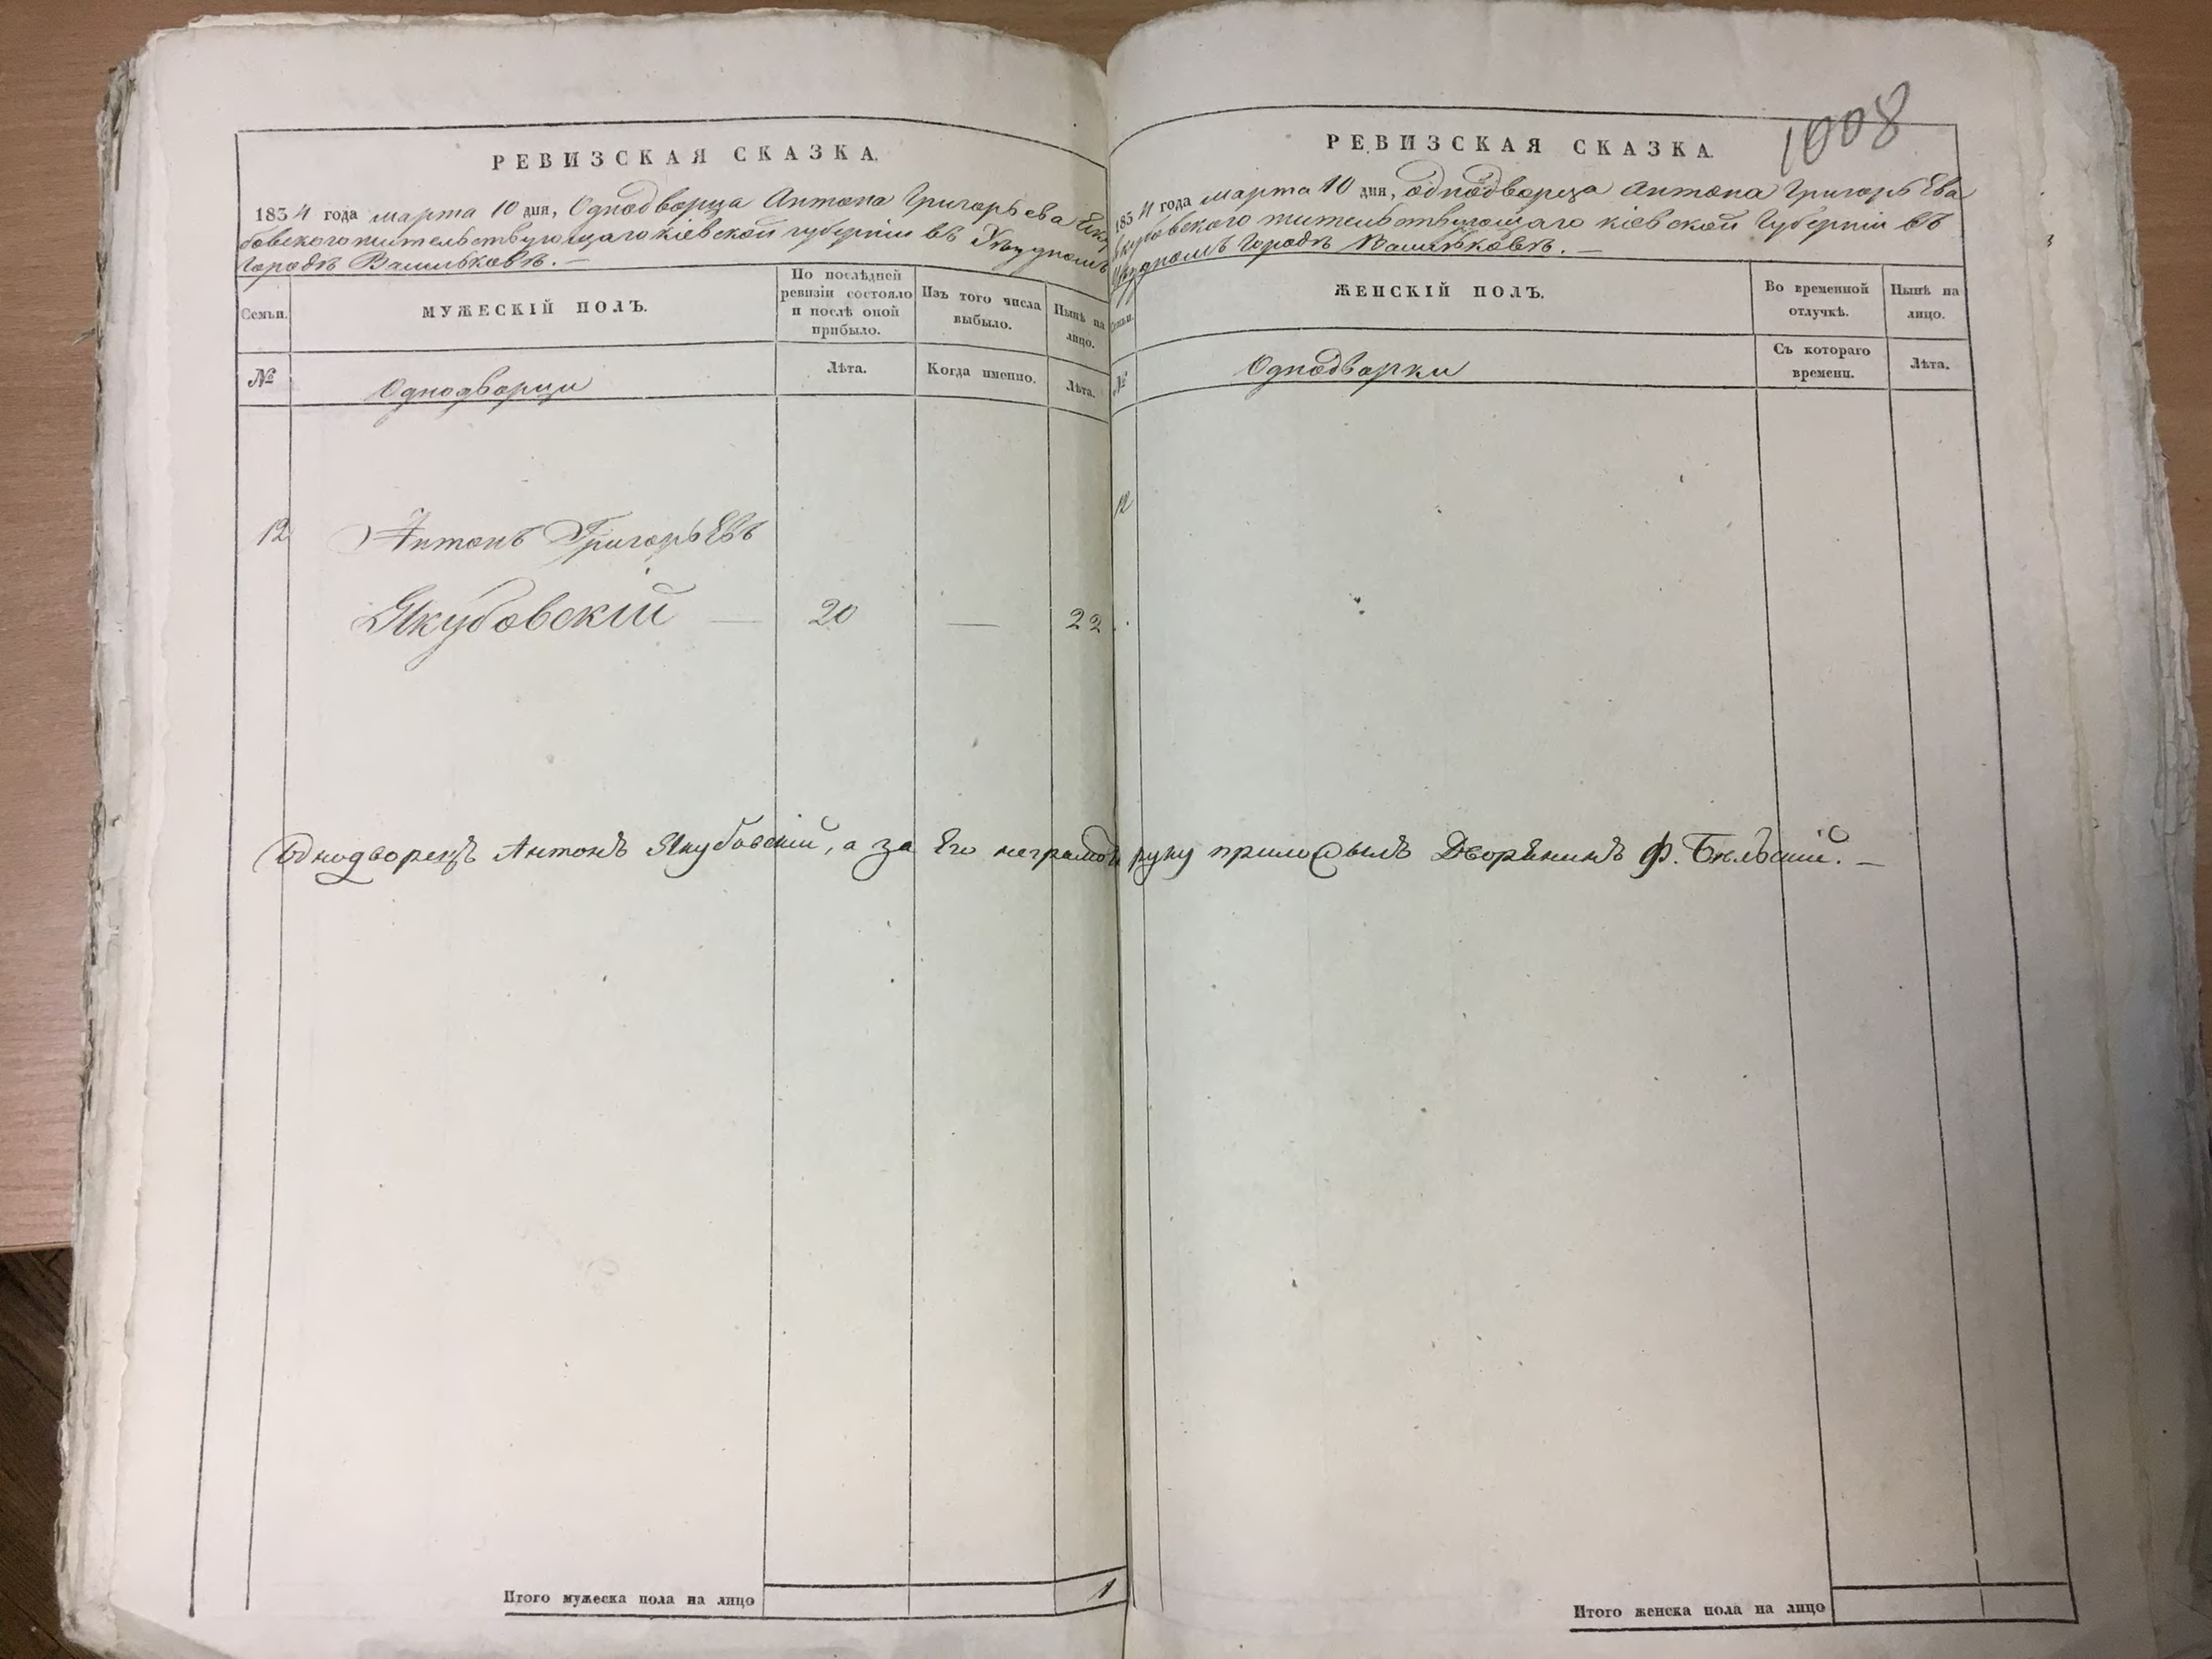 РЕВИЗСКАЯ СКАЗКА.
1834 года марта 10 дня, Однодворца Антона Григорьева Яку
бовского жительствующаго кіевской губерніи въ Уѣздномъ
Городѣ Васильковѣ. —
Семьи.
МУЖЕСКІЙ ПОЛЪ.
По послѣдней
ревизіи состояло
и послѣ оной
прибыло.
Изъ того числа
выбыло.
Нынѣ на
лицо.
№
Однодворцы
Лѣта.
Когда именно.
Лѣта.
12
Антонъ Григорьевъ
Якубовскій — 20 — 22
Итого мужеска пола на лицо 1
1008
РЕВИЗСКАЯ СКАЗКА.
1834 года марта 10 дня, однодворца Антона Григорьева
Якубовского жительствующаго кіевской Губерніи въ
Уѣздномъ Городѣ Васильковѣ. —
Семьи.
ЖЕНСКІЙ ПОЛЪ.
Во временной
отлучкѣ.
Нынѣ на
лицо.
№
Однодворки
Съ котораго
времени.
Лѣта.
12
Однодворецъ Антонъ Якубовскій, а за Его неграмот руку приложилъ Дворянинъ Ф. Бѣльскій. —
Итого женска пола на лицо